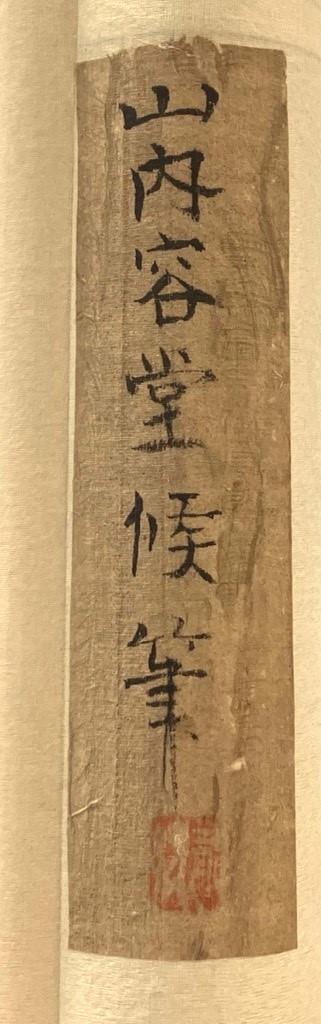 山内容堂候筆